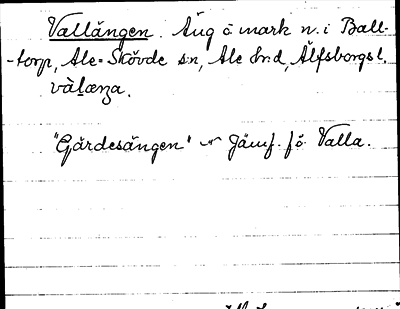 Vallängen. Äng o mark n. i Ball-
-torp, Ale-Skövde sn, Ale hrd, Älfsborgs l.
vàlæŋa.
"Gärdesängen" Jämf. fö. Valla.